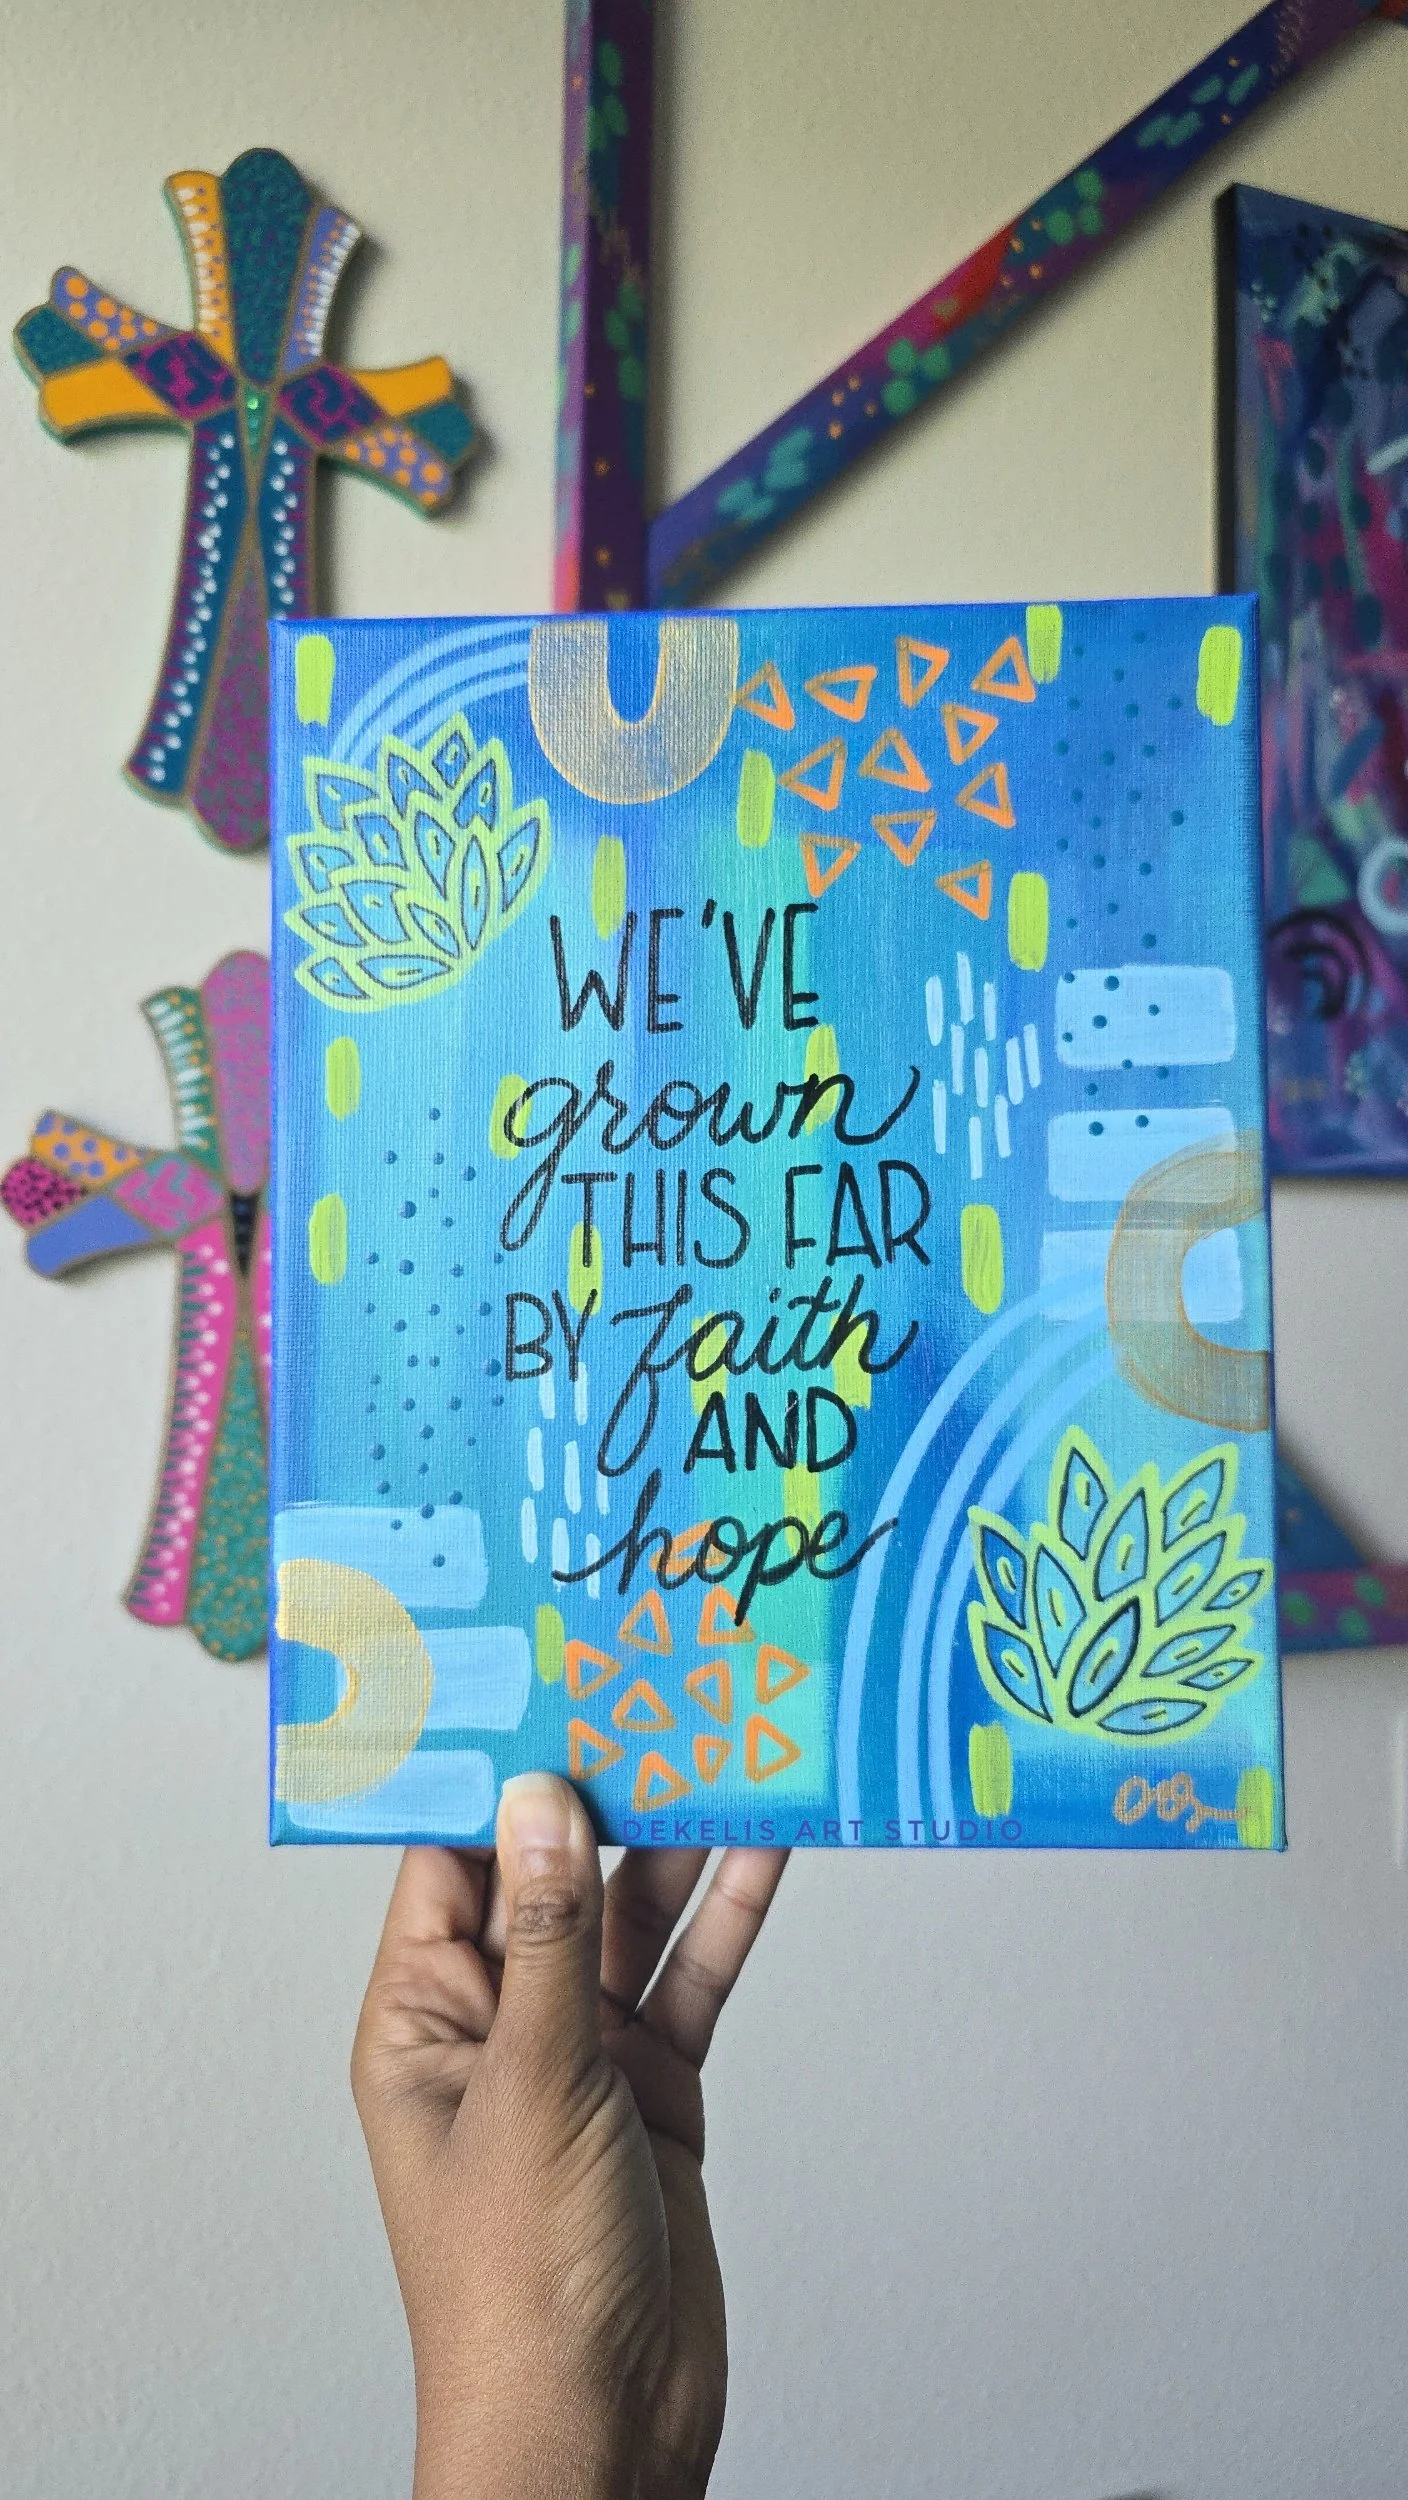 WE'VE
grown
THIS FAR
BY faith
AND
hope
DEKELIS ART STUDIO